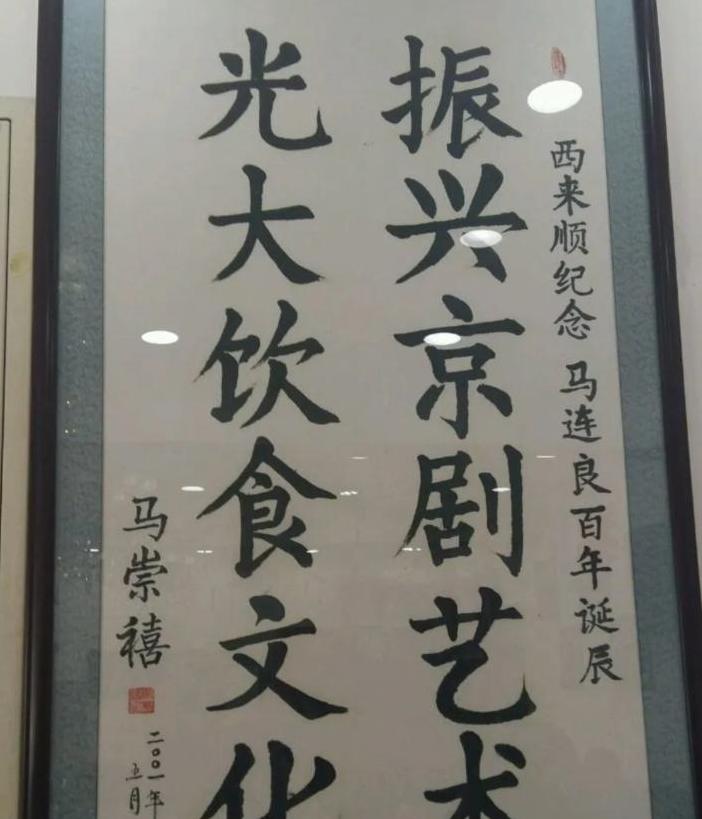 西来顺纪念 马连良百年诞辰
振兴京剧艺术
光大饮食文化
马崇禧
二〇〇一年
五月